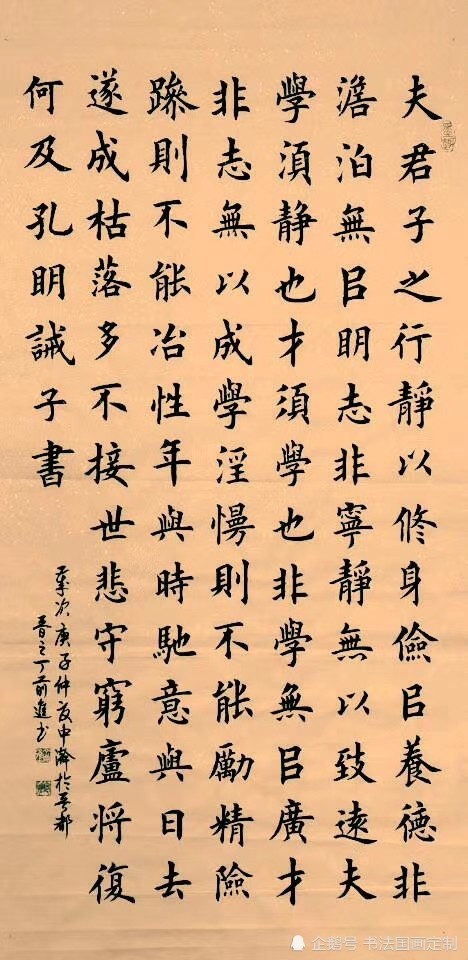 夫君子之行靜以修身儉㠯養德非
澹泊無㠯眀志非寧靜無以致遠夫
學湏静也才須學也非學無㠯廣才
非志無以成學淫慢則不能勵精險
躁則不能冶性年與時馳意與日去
遂成枯落多不接世悲守窮廬將復
何及孔眀誡子書
歲次庚子仲夏中瀚於晋都
晋之丁前進书
企鹅号 书法国画定制